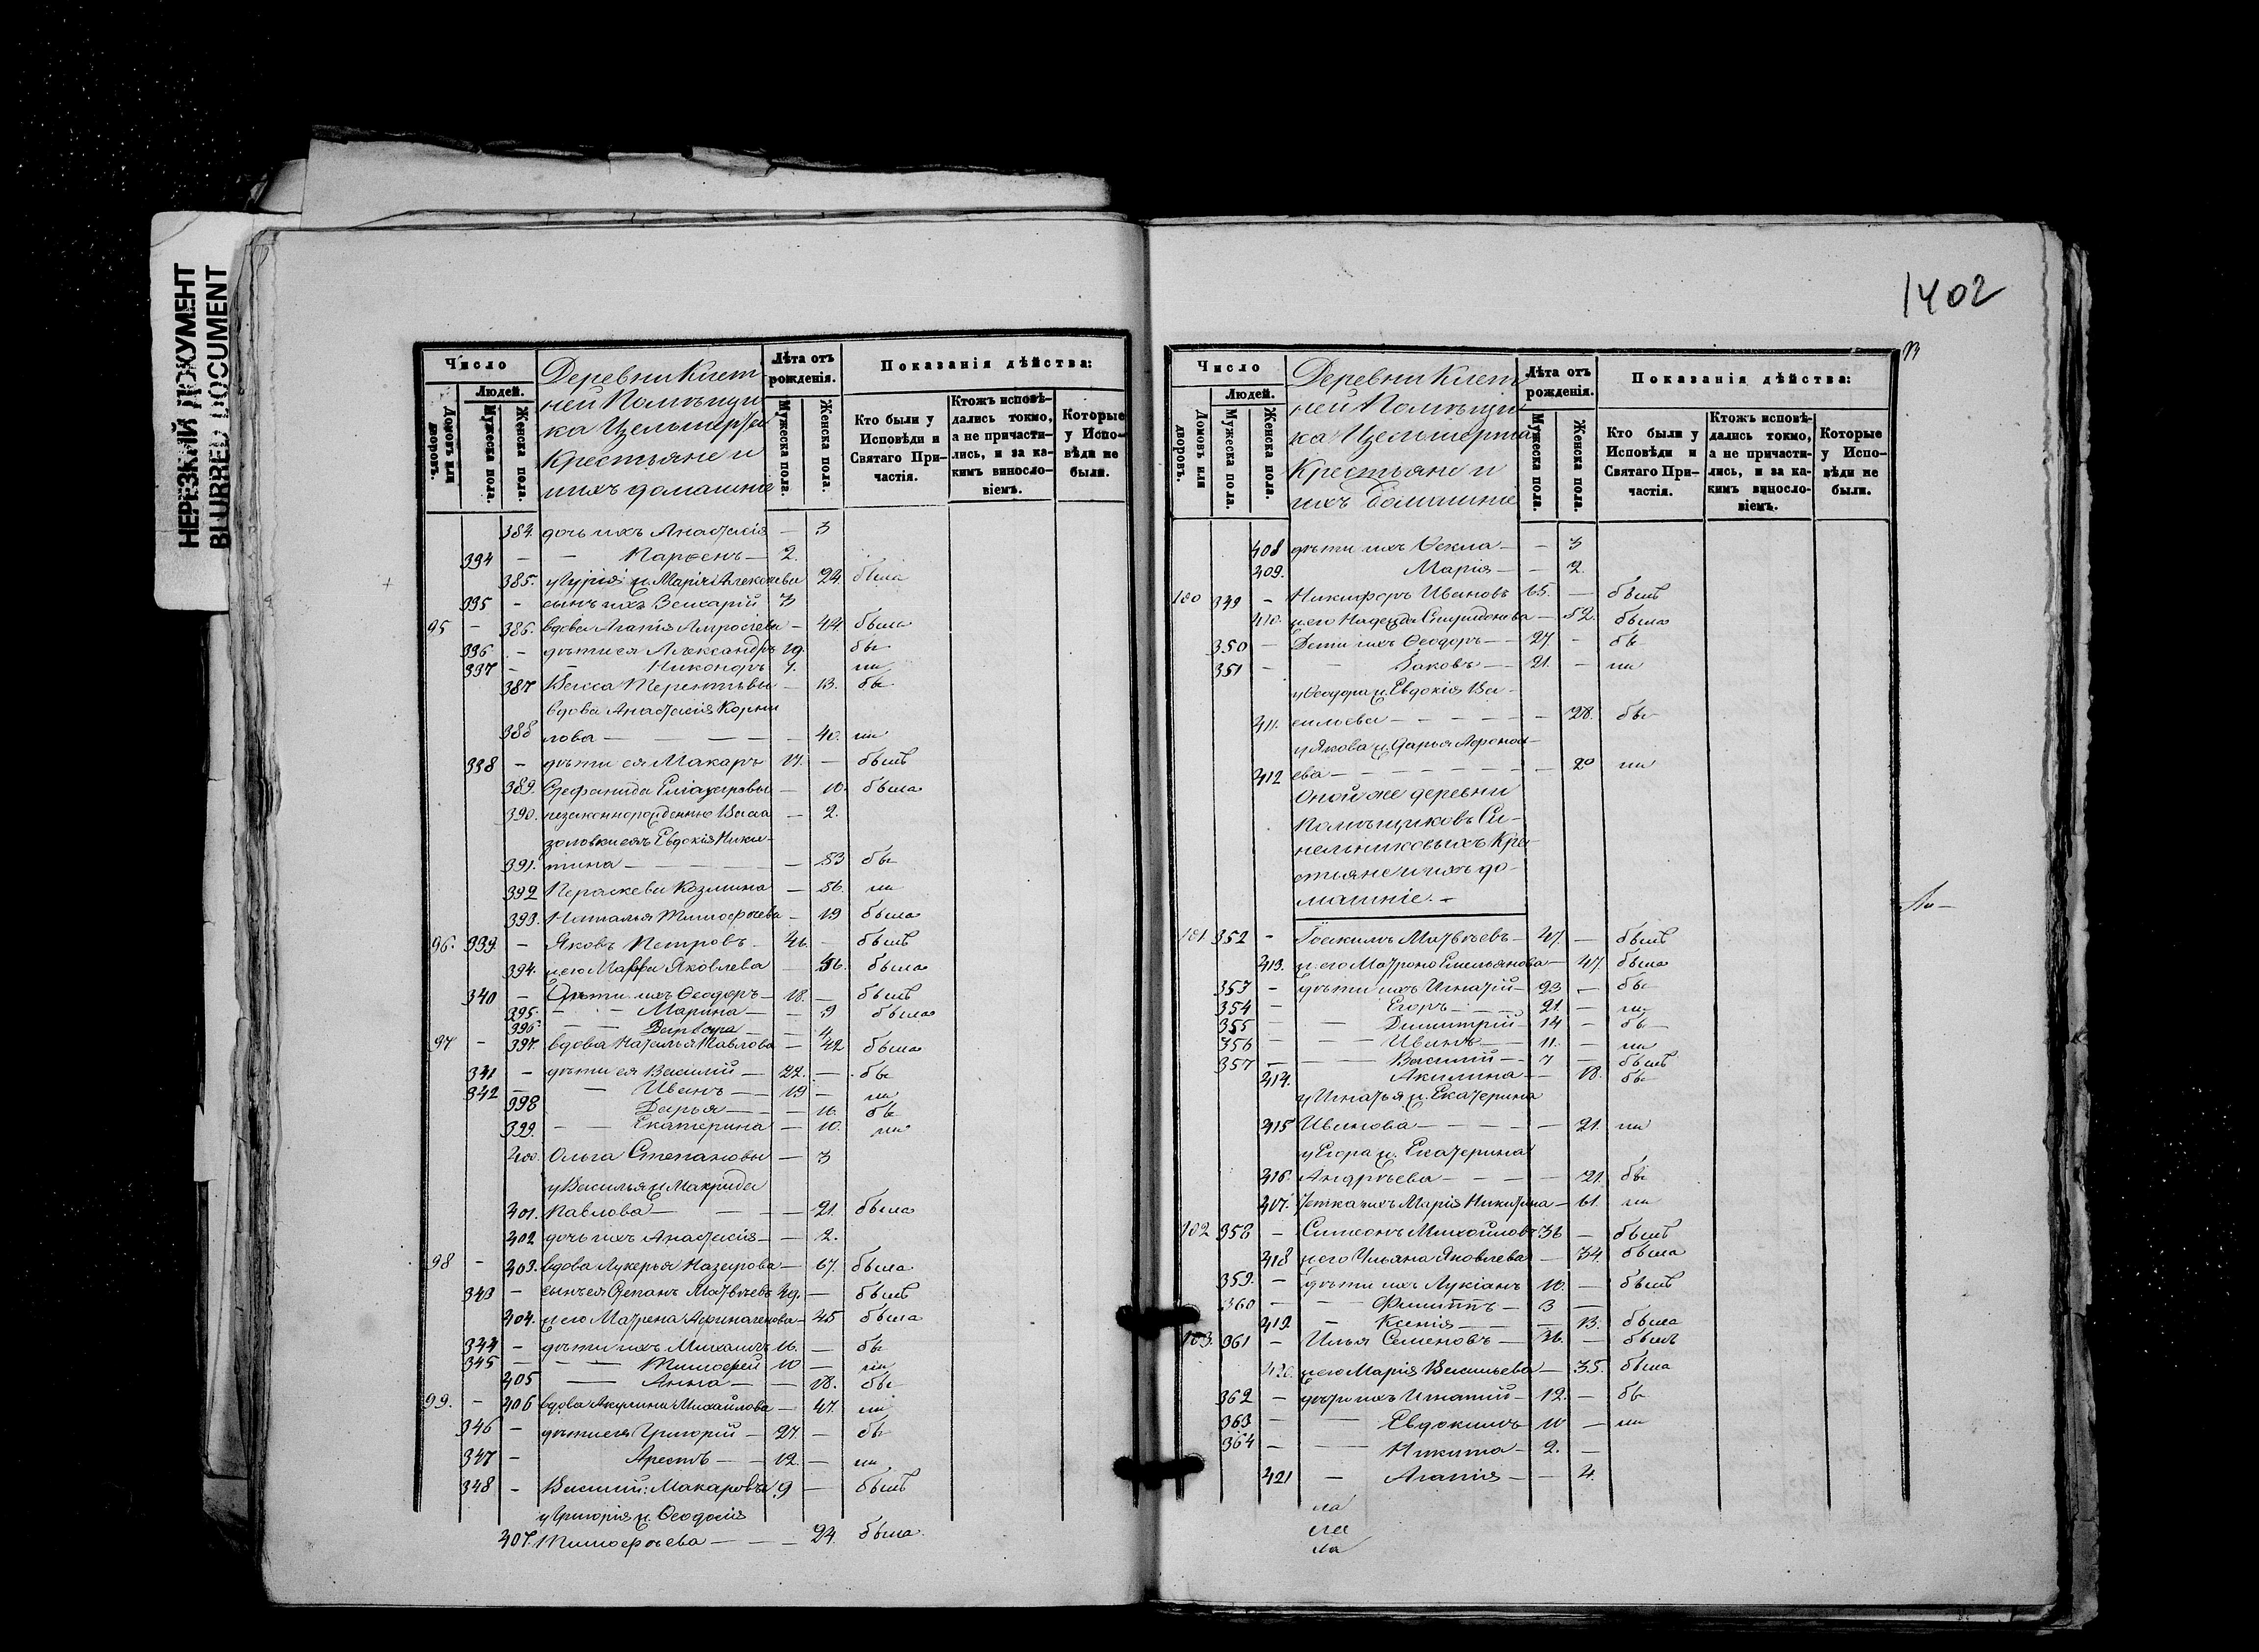 НЕРЕЗКИЙ ДОКУМЕНТ
BLURRED DOCUMENT
Число
Людей.
Домовъ или дворовъ.
Мужеска пола.
Женска пола.
Деревни Клет-
ней Помѣщи
ка
Крестьяне и
ихъ домашніе
Лѣта отъ рожденія.
Мужеска пола.
Женска пола.
Показанія дѣйства:
Кто были у Исповѣди и Святаго Причастія.
Ктожъ исповѣдались токмо, а не причастились, и за какимъ винословіемъ.
Которые у Исповѣди не были.
384. дочь ихъ Анастасія — 3
394 — — Парѳенъ — 2.
385. у Гурія ж. Марія Алексѣева 24. была
395 — сынъ ихъ Захарій 3
95 — 386. вдова Агапія — 44. была
336 — дѣти ея Александръ 19. бы
337 — — Никоноръ 7. ли
387 Васса Терентьева — 13. бы
вдова Анастасія Корни
388 лова — — — 40. ли
338 — дѣти ея Макаръ 17. — былъ
389. Стефанида — 10. была
390. незаконнорожденная Васса — 2.
золовки ея Евдокія Ники-
391. тина — — 53 бы
392 Параскева Козмина — 56. ли
393. Наталья Тимоѳѣева — 19 была
96. 339 — Яковъ Петровъ 46. — былъ
394. ж. его Марѳа Яковлева — 46. была
340 — Дѣти ихъ Ѳеодоръ — 18. — былъ
395. — — Марина — — 9 была
396. — — Варвара — — 4
97 — 397. вдова Наталья Павлова — 42 была
341 — дѣти ея Василій — 22. — бы
342 — — Иванъ — 19 — ли
398 Дарья — — 16. бы
399. — — Екатерина — 10. ли
400. Ольга Степанова — 3
у Василья ж. Макрида
401. Павлова — — — 21. была
402 дочь ихъ Анастасія — — 2.
98 — 403. вдова Лукерья Назарова — 67. была
343 — сынъ ея Степанъ Матвѣевъ 49. — былъ
404. ж. его Матрена — 45 была
344 — дѣти ихъ Михаилъ 16. — бы
345 — — — Тимоѳей 10 — ли
405 — Анна — — 18. бы
99. — 406 вдова Акулина Михайлова — 47. ли
346 — дѣти ея Григорій — 27. — бы
347 — Арестъ — 12. — ли
348 — Василій Макаровъ 9 — былъ
у Григорія ж. Ѳеодосія
407. Тимоѳѣева — — — 24. была
1402
Число
Людей.
Домовъ или дворовъ.
Мужеска пола.
Женска пола.
Деревни Клет
ней Помѣщи
ка
Крестьяне и
ихъ домашніе
Лѣта отъ рожденія.
Мужеска пола.
Женска пола.
Показанія дѣйства:
Кто были у Исповѣди и Святаго Причастія.
Ктожъ исповѣдались токмо, а не причастились, и за какимъ винословіемъ.
Которые у Исповѣди не были.
408 дѣти ихъ Ѳекла — — 3
409. Марія — — 2.
100 349 — Никифоръ Ивановъ 65. — былъ
410. ж. его Надежда Спиридонова — 52. была
350 — Дети ихъ Ѳеодоръ — 27 — бы
351 — — Іаковъ — 21. — ли
у Ѳеодора ж. Евдокія Ва-
411. сильева — — — — 28. бы
у Якова ж. Дарья Аѳонась-
412 ева — — — — 20 ли
Оной же деревни
Помѣщиковъ Си-
нельниковыхъ Кре-
стьяне и ихъ до-
машніе. —
101 352 — Іоакимъ Матвѣевъ — 47. — былъ
413. ж. его Матрона Емельянова — 47. была
353 — дѣти ихъ Игнатій — 23 — бы
354 — Егоръ — — 21. — ли
355 — — Димитрій — 14 — бы
356 — — — Иванъ — 11. — ли
357 — — — Василій — 7 — былъ
414. Акилина — 18. бы
у Игнатья ж. Екатерина
415 Иванова — — — — 21. ли
у Егора ж. Екатерина
416. Андрѣева — — — 21. бы
417. тетка ихъ Марія Никитина — 61. ли
102 358 — Симеонъ Михайловъ 36 — былъ
418 ж. его Ульяна Яковлева — 34. была
359. — дѣти ихъ Лукіанъ 10. — былъ
360 — — Филиппъ — 3 —
419 — Ксенія — — 13. была
103. 361 — Илья Семеновъ — 36. — былъ
420. ж. его Марія Васильева — 35. была
362 — дѣти ихъ Игнатій — 12. — бы
363 — — Евдокимъ 10 — ли
364 — — Никита — 2. —
421 — Агапія — — 4.
ла
ла
ла